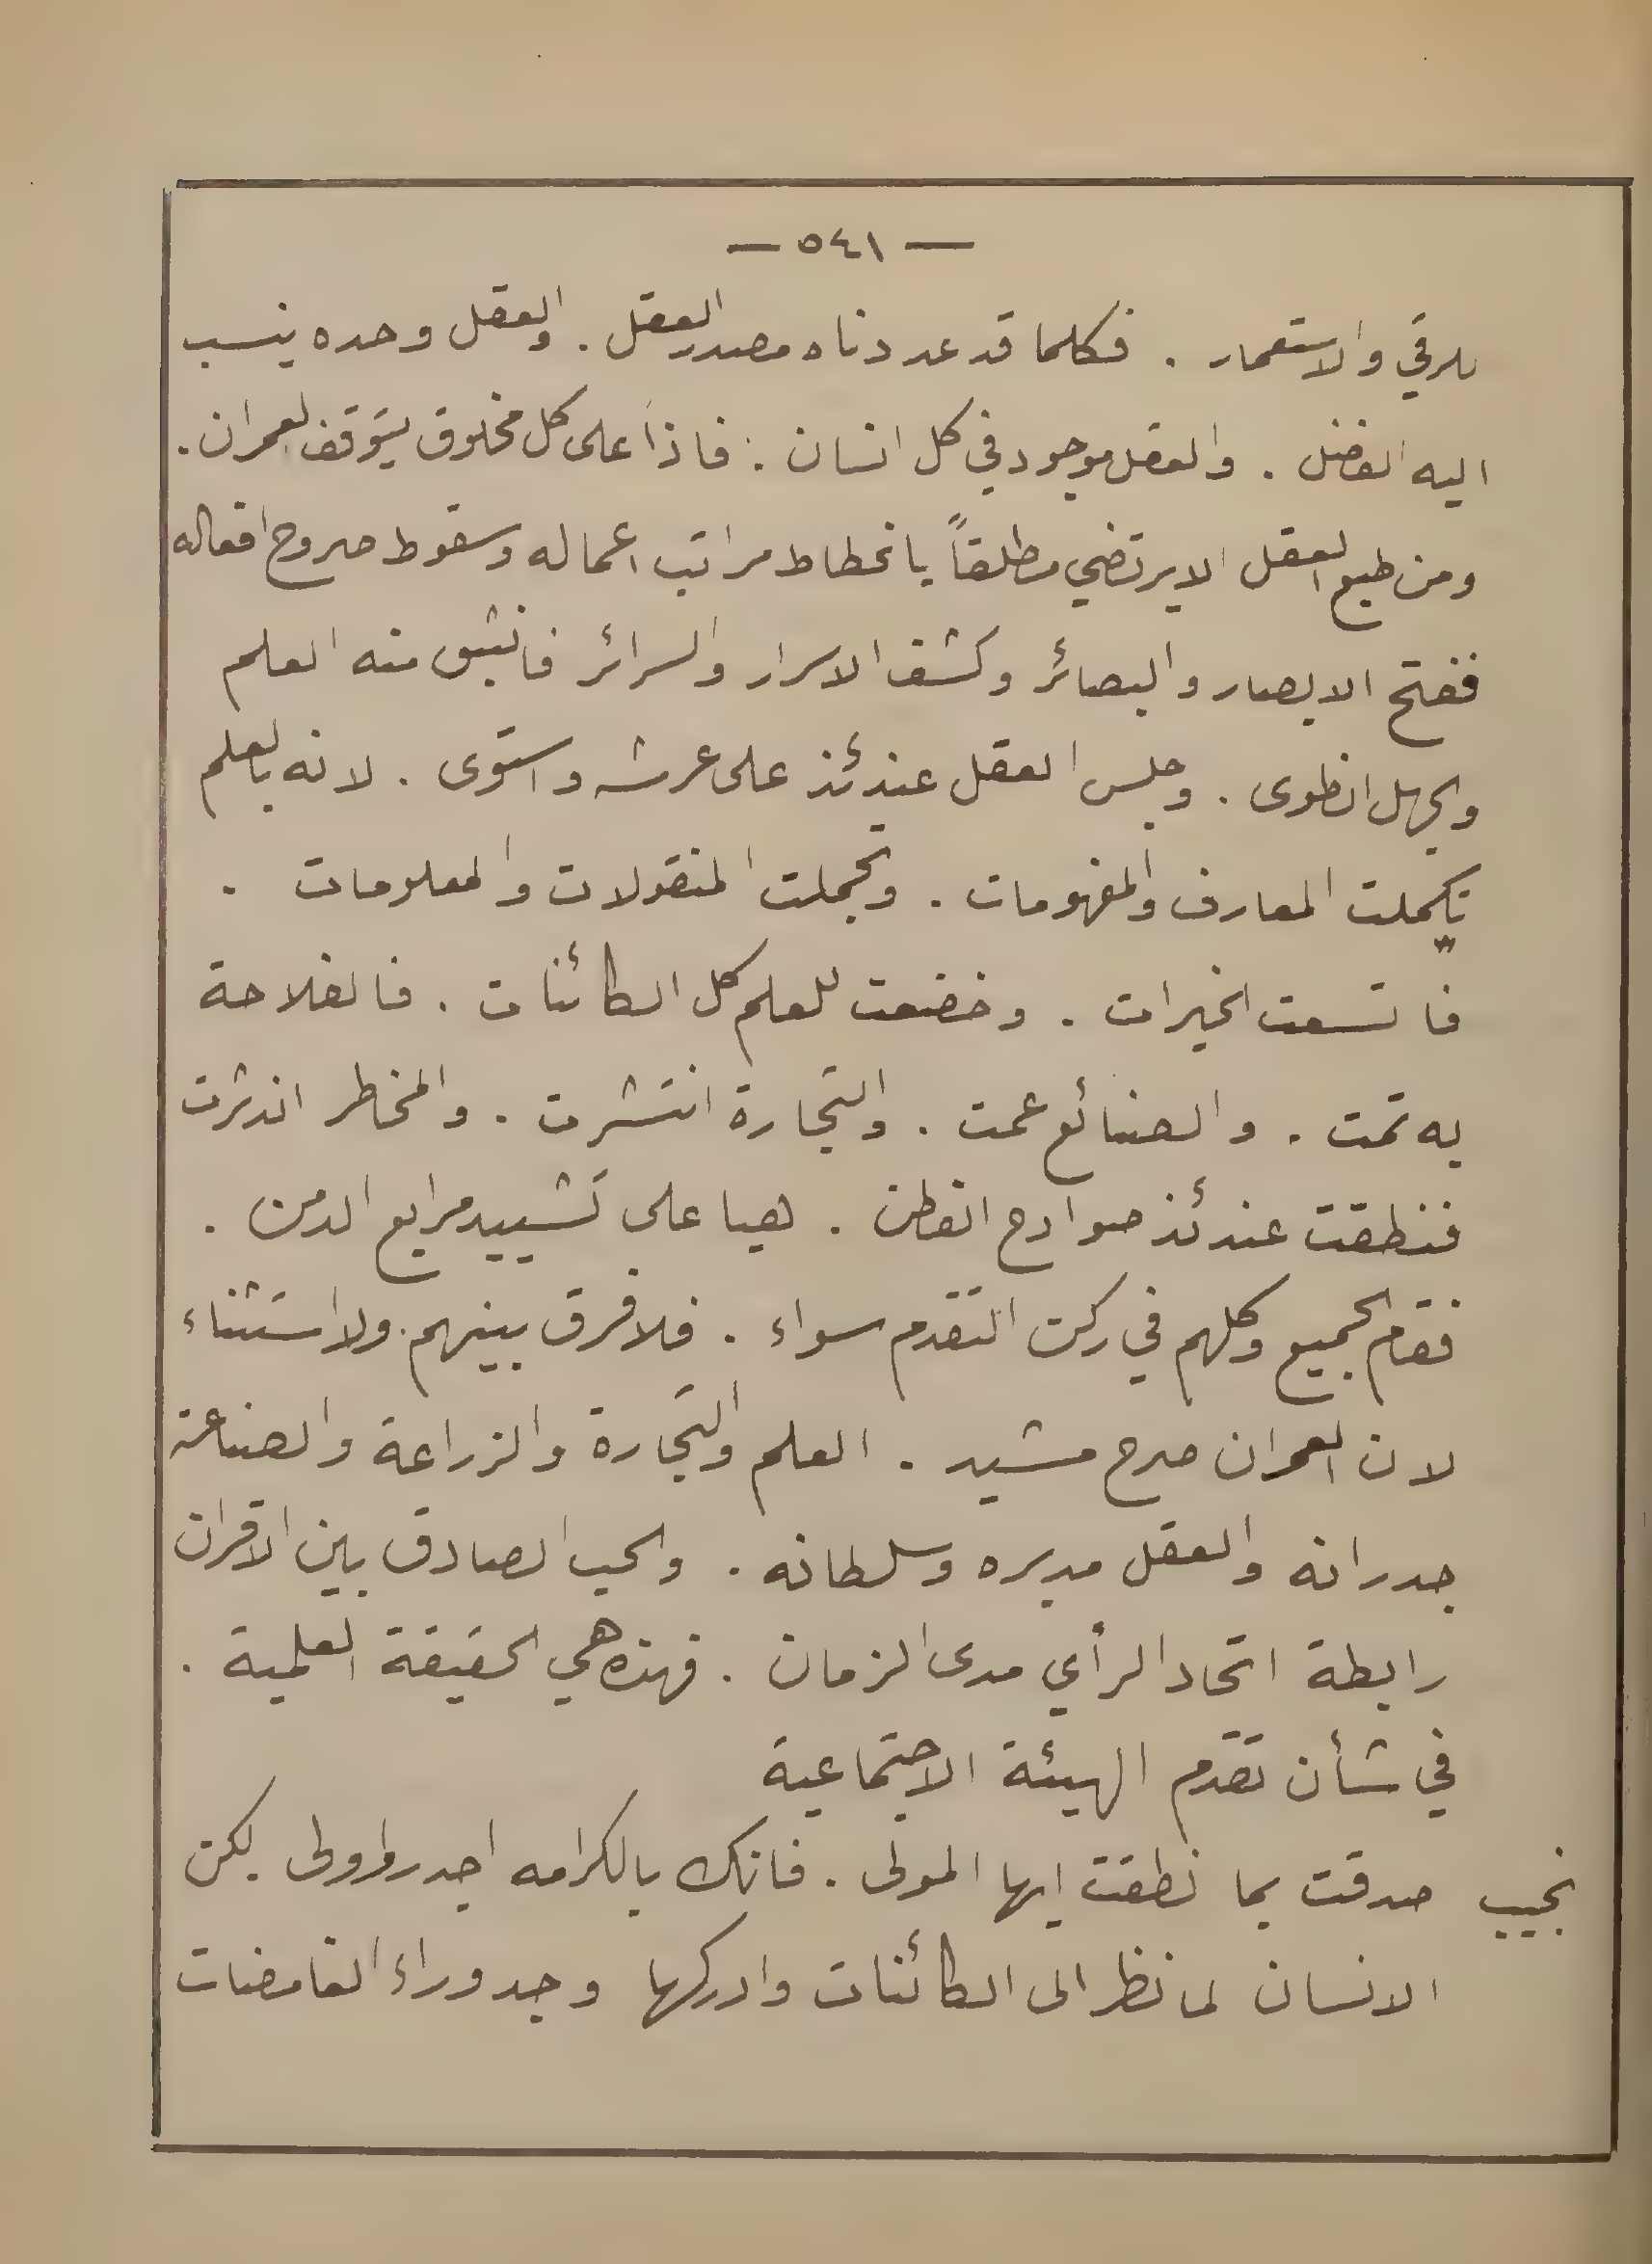 — ٥٤١ —
للرقي والاستعمار . فكلما قد عددناه مصدر العقل . والعقل وحده ينسب
اليه الفضل . والعقل موجود في كل انسان . فاذاً على كل مخلوق يتوقف العمران .
ومن طبع العقل الا يرتضي مطلقاً بانحطاط مراتب اعماله وسقوط صروح افعاله
ففتح الابصار والبصائر وكشف الاسرار والسرائر فانبثق منه العلم
والجهل انطوى . وجلس العقل عندئذ على عرشه واستوى . لانه بالعلم
تكملت المعارف والمفهومات . وتجملت المنقولات والمعلومات .
فاتسعت الخيرات . وخضعت للعلم كل الكائنات . فالفلاحة
به تمت . والصنائع عمت . والتجارة انتشرت . والمخاطر اندثرت
فنطقت عندئذ صوادح الفطن . هيا على تشييد مرابع الدمن .
فقام الجميع وكلهم في ركب التقدم سواء . فلا فرق بينهم . ولا استثناء
لان العمران صرح مشيد . العلم والتجارة والزراعة والصناعة
جدرانه والعقل مديره وسلطانه . والحب الصادق بين الاقران
رابطة اتحاد الرأي مدى الزمان . فهذه هي الحقيقة العلمية .
في شأن تقدم الهيئة الاجتماعية
نجيب صدقت بما نطقت ايها المولى . فانك بالكرامه اجدر واولى لكن
الانسان لما نظر الى الكائنات وادركها وجد وراء الغامضات